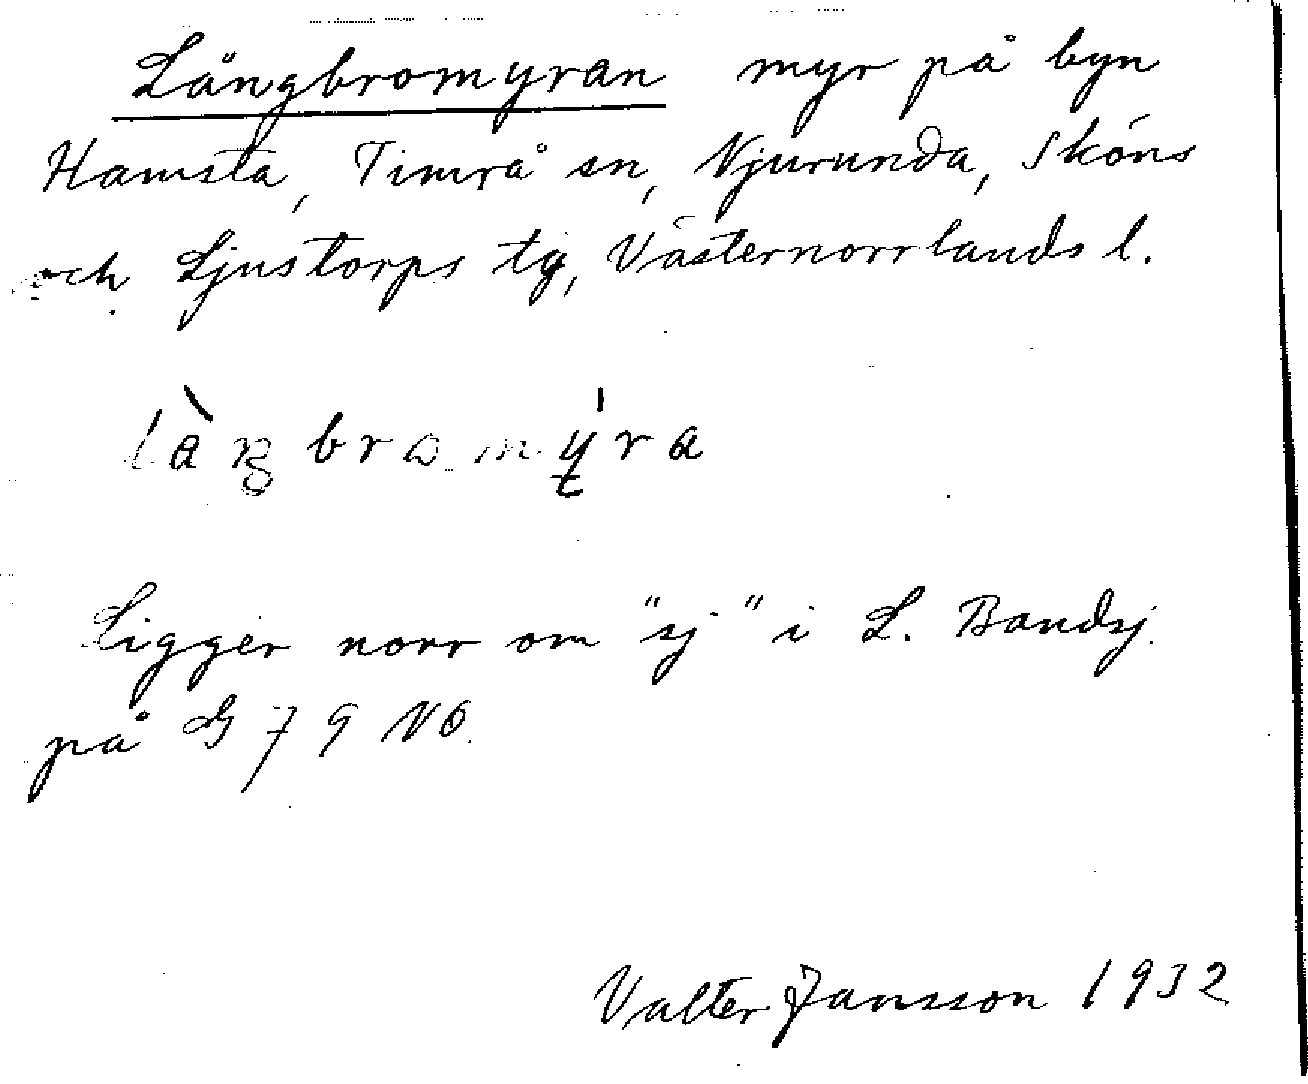 Långbromyran myr på byn
Hamsta, Timrå sn, Njurunda, Sköns
och Ljustorps tg, Västernorrlands l.
Ligger norr om "sj" i L. Bandsj.
på G 7 9 NO.
Valter Jansson 1932